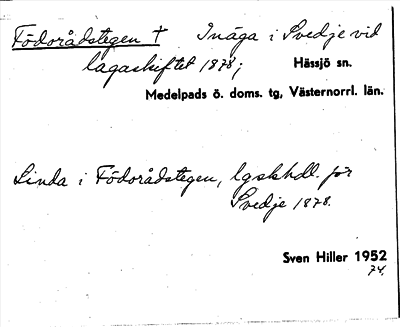 Födorådstegen † Inäga i Svedje vid
lagaskiftet 1878; Hässjö sn.
Medelpads ö. doms. tg, Västernorrl. län.
Linda i Födorådstegen, lgskhdl. för
Svedje 1878.
Sven Hiller 1952
74.